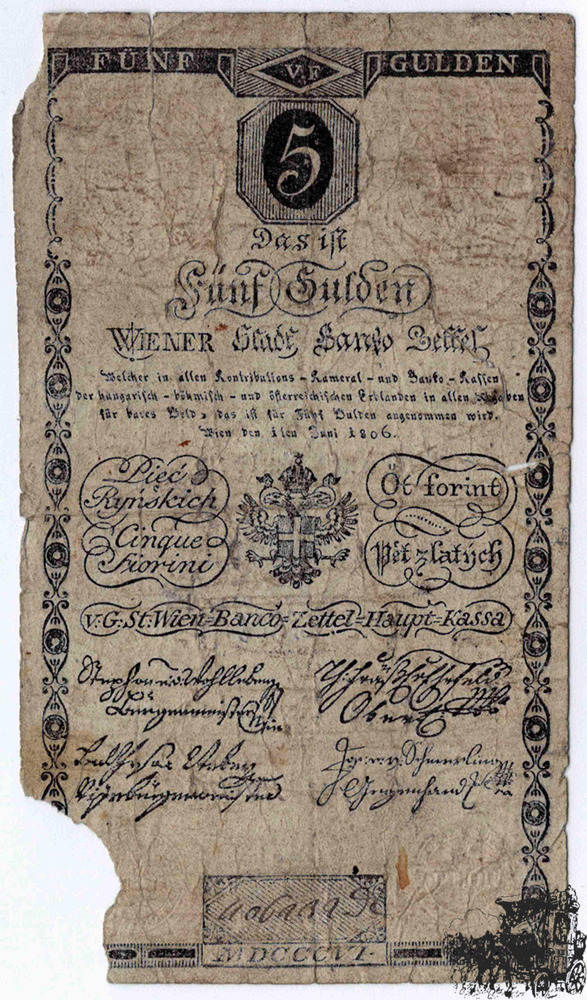 FÜNF V. F GULDEN
5
Das ist
Fünf Gulden
WIENER Stadt Banko Zettel
Welcher in allen Kontributions - Kameral - und Banko - Kassen
der hungarisch - böhmisch - und österreichischen Erblanden in allen
für bares Geld, das ist für Fünf Gulden angenommen wird.
Wien den 1ten Juni 1806.
Pieć Öt forint
Ryńskich
Cinque Pět zlatych
Fiorini
v: G: St: Wien=Banco=Zettel=Haupt=Kassa
Stephan v. Wohlleben
Burgermeister
MDCCCVI.